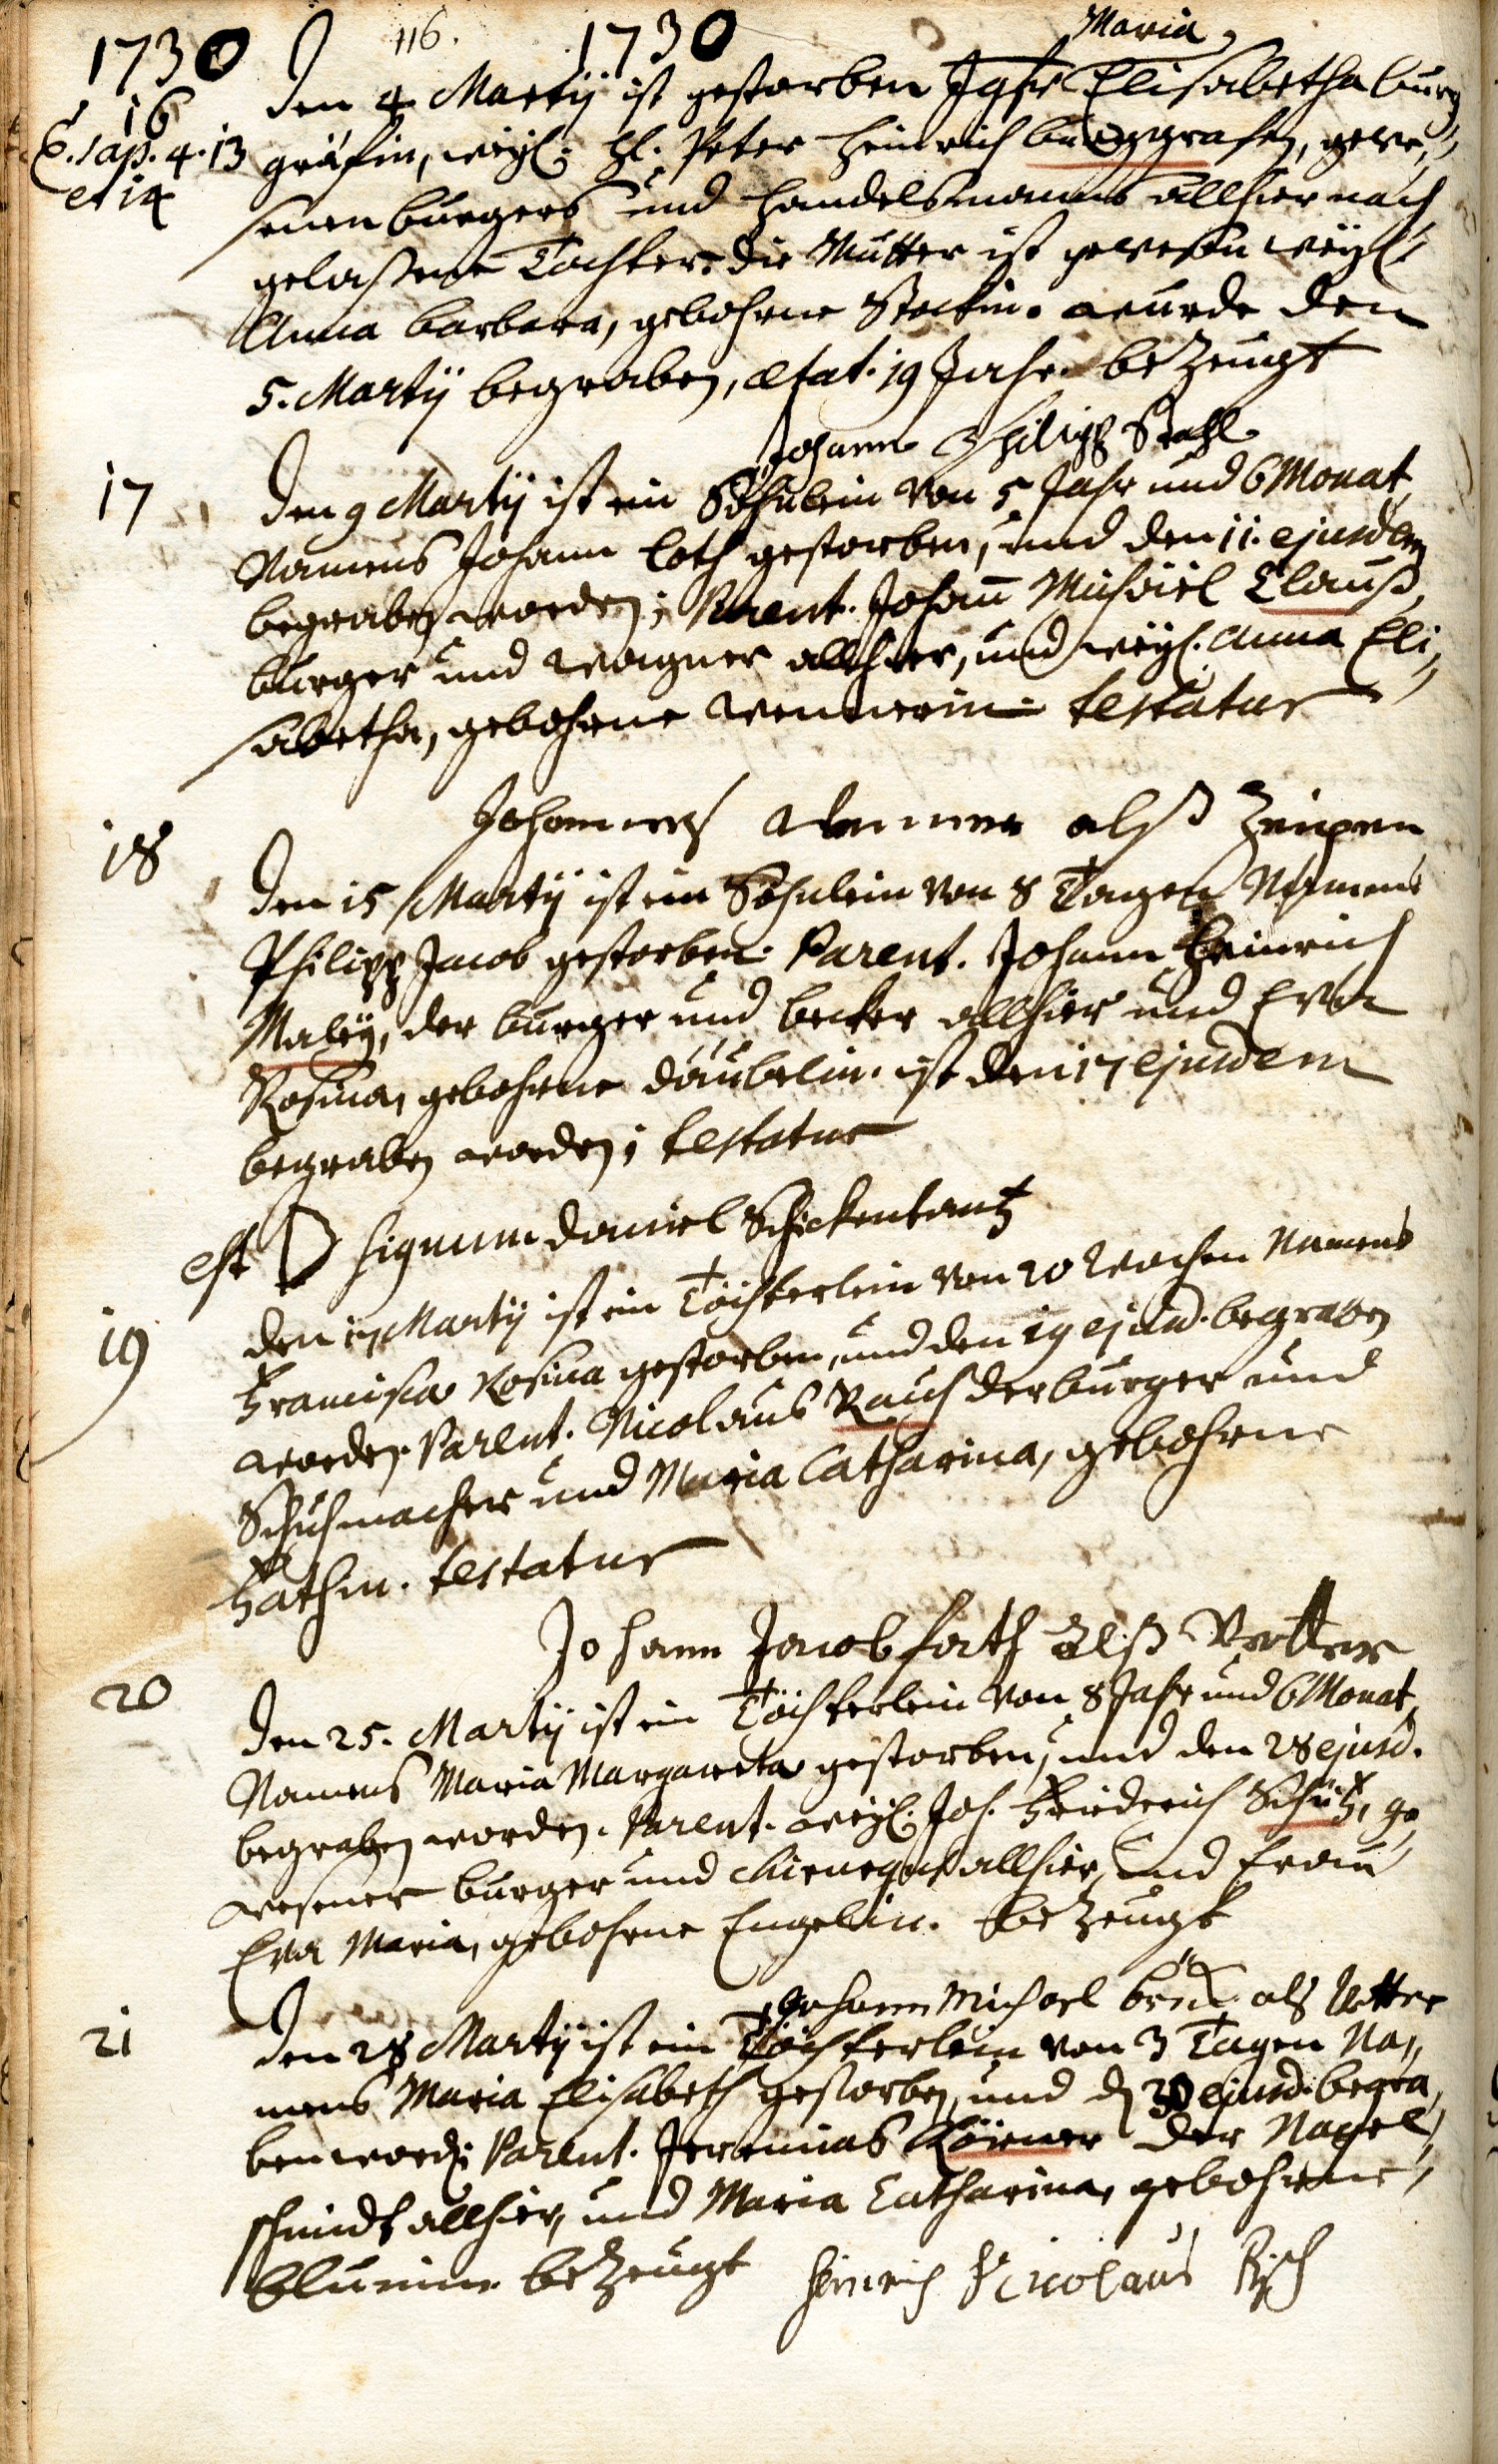 1730 116. 1730
Maria
16 Den 4 Martij ist gestorben Jgfr Elisabetha burg
C. Sap. 4. 13 gräfin, weyl: H. Peter Heinrich burggrafen, gewe„
et 14 senen burgers und handelsmanns allhier nach
gelaßene Tochter. die Mutter ist gewesen weyl:
Anna barbara, gebohrne Steckin. wurde den
5. Martij begraben, ætat. 19 Jahr. bezeugt
Johann Philipp Stahl
17 Den 9 Martij ist ein Söhnlein von 5 Jahr und 6 Monat,
Namens Johann Loth gestorben, und den 11. ejusdem
begraben worden; Parent. Johann Michäel Clauß,
burger und wagner allhier, und weyl. Anna Eli„
sabetha, gebohrne wennerin. testatur
Johannes wenner alß Zeugen
18 Den 15 Martij ist ein Söhnlein von 8 Tagen Namens
Philipp Jacob gestorben. Parent. Johann Heinrich
Maley, der burger und becker allhier und Eva
Rosina, gebohrne däubelin. ist den 17 ejusdem
begraben worden; testatur
est D signum daniel Schickentantz
19 den 17 Martij ist ein Töchterlein von 20 Wochen Namens
Francisca Rosina gestorben, und den 19 ejusd. begraben
worden. Parent. Nicolaus Rauch der burger und
Schuhmacher und Maria Catharina, gebohrne
Fathin. testatur
Johann Jacob fath Alß Vetter
20 Den 25. Martij ist ein Töchterlein von 8 Jahr und 6 Monat,
Namens Maria Margareta gestorben, und den 28 ejusd.
begraben worden. Parent. weyl. Joh. Friederich Schütz, ge„
wesener burger und chirurgus allhier, und Frau
Eva Maria, gebohrne Engelin. bezeugt
Johann Michael als Vetter
21 Den 28 Martij ist ein Töchterlein von 3 Tagen Na„
mens Maria Elisabeth gestorben, und d 30 ejusd. begra„
ben word: Parent. Jeremias Körner der Nagel„
schmidt allhier, und Maria Catharina, gebohrne
blumin. bezeugt Heinrich Nicolaus Risch